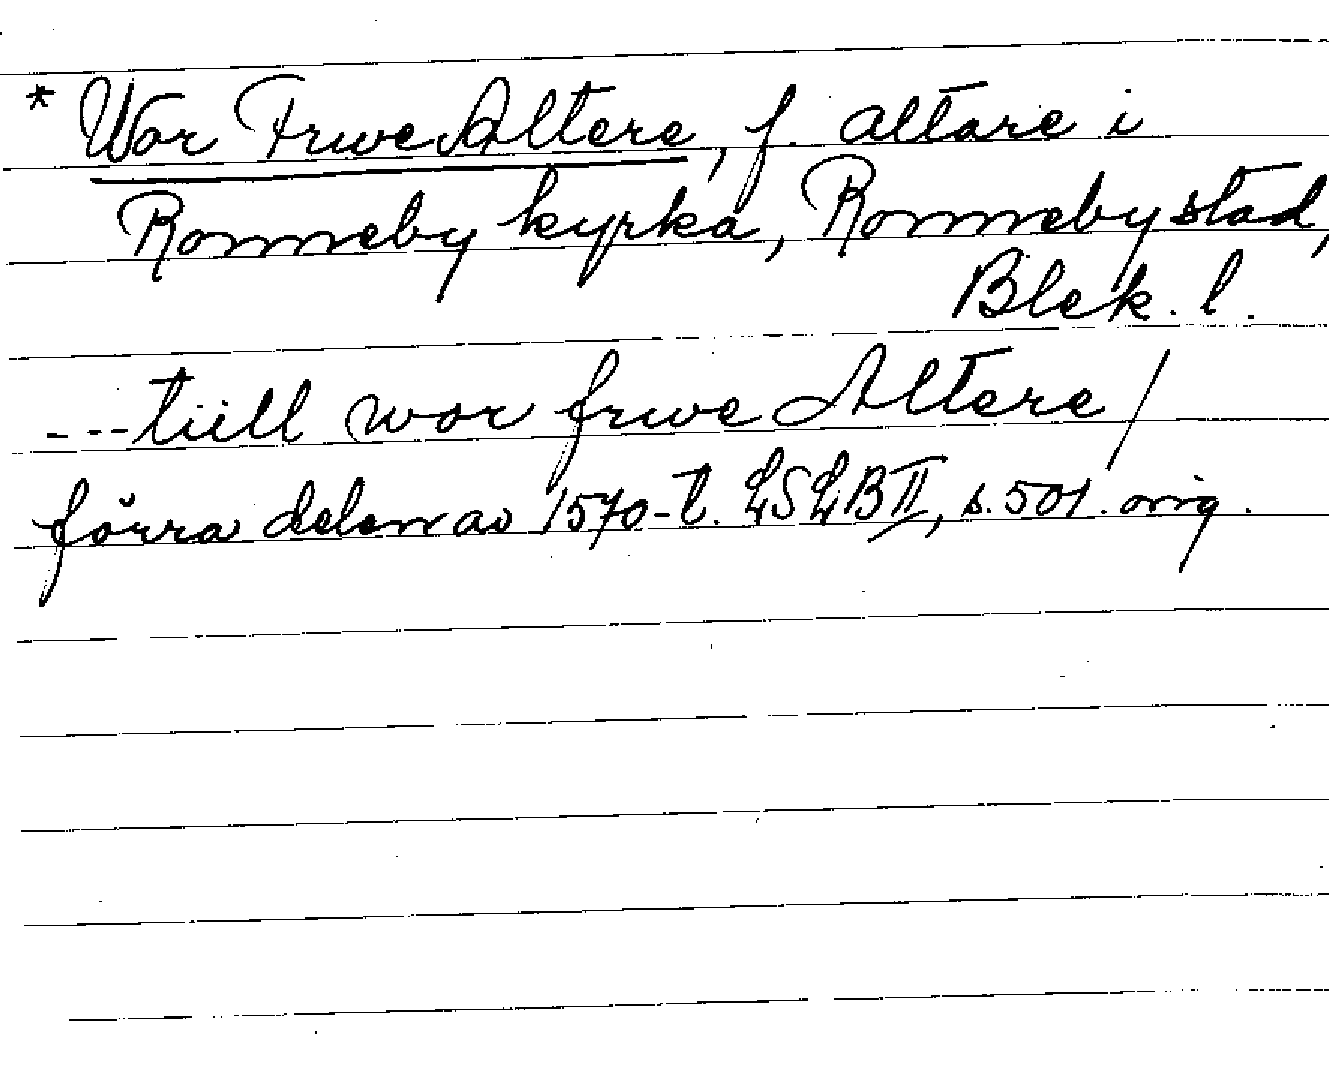 * Wor Frwe Altere, f. altare i
Ronneby kyrka, Ronneby stad,
Blek. l.
---tiill wor frwe Altere /
förra delen av 1570-t. LSLB II, s. 501. orig.